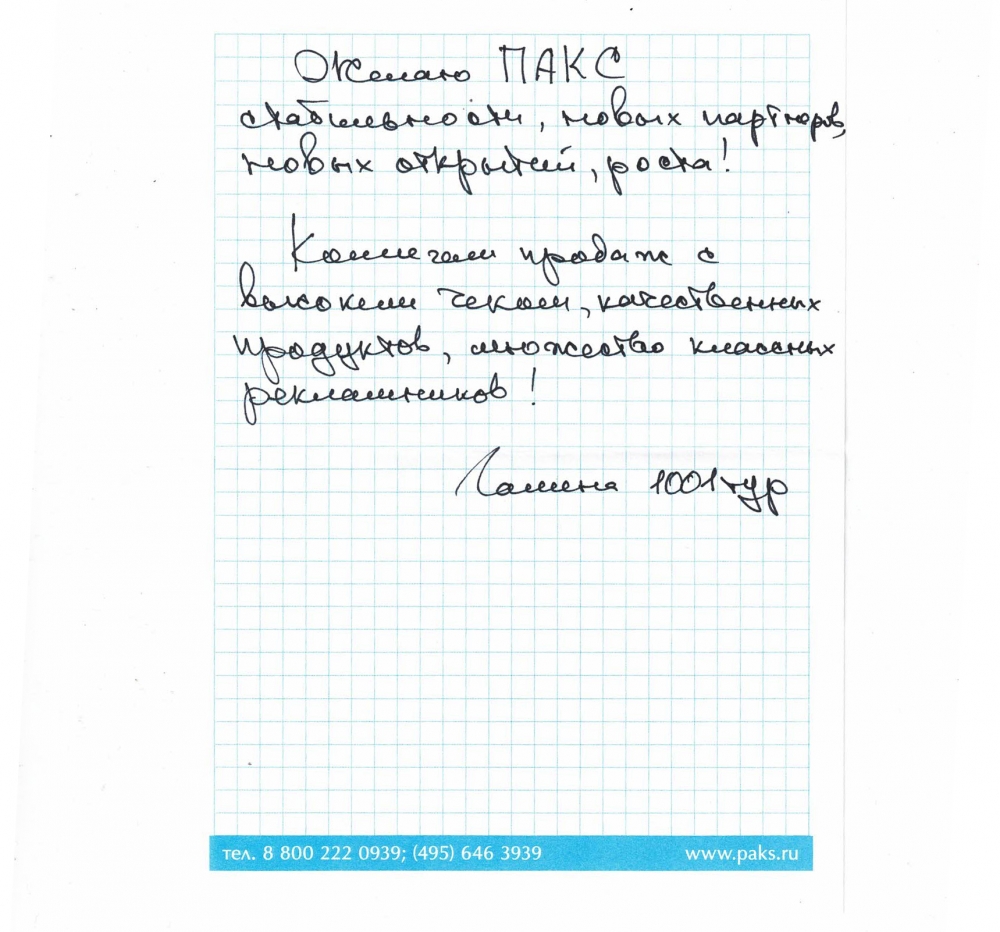 Желаю ПАКС
стабильности, новых партнеров,
новых открытий, роста!
Коллегам продаж с
высоким чеком, качественных
продуктов, множество классных
рекламников!
1001 тур
тел. 8 800 222 0939; (495) 646 3939
www.paks.ru